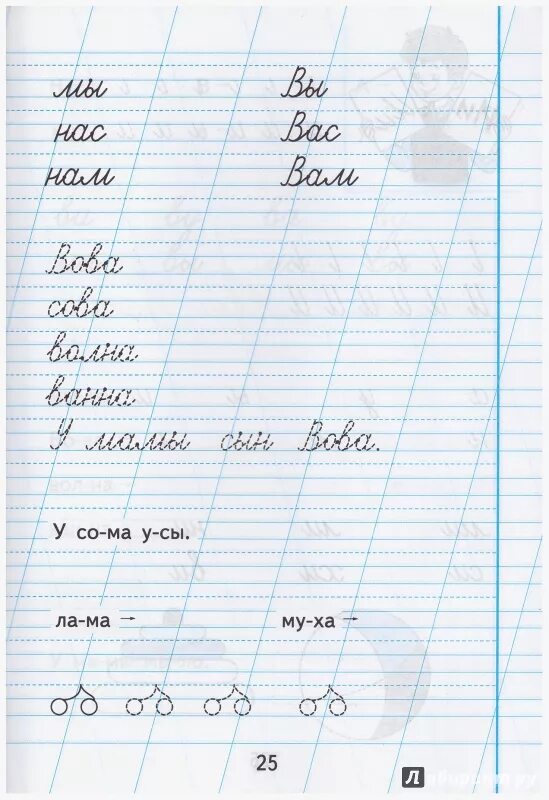 мы Вы
нас Вас
нам Вам
Вова
сова
волна
ванна
У мамы сын Вова.
У со-ма у-сы.
ла-ма → му-ха →
25
Лабиринт.ру